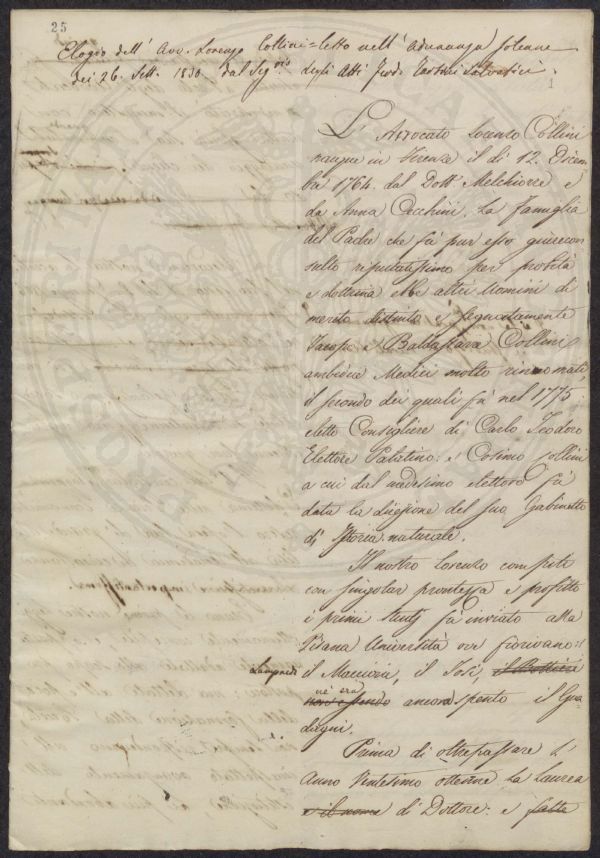 25
Elogio dell' Avv. Lorenzo Collini = letto nell' adunanza solenne
dei 26. Sett. 1830 dal Seg.rio degli Atti Ferd. Tartini Salvatici.
1
L' Avvocato Lorenzo Collini
nacque in Firenze il dì 12. Dicem
bre 1764. dal Dott.e Melchiorre e
da Anna Cecchini. La famiglia
del Padre che fù pur esso giurecon
sulto riputatissimo per probità
e dottrina ebbe altri Uomini di
merito distinto e segnatamente
Jacopo e Baldassare Collini
ambidue Medici molto rinnomati,
il secondo dei quali fù nel 1775
eletto Consigliere di Carlo Teodoro
Elettore Palatino: e Cosimo Collini
a cui dal medesimo elettore fù
data la direzione del suo Gabinetto
di Storia naturale.
Il nostro Lorenzo compiti
con singolar prontezza e profitto
i primi studj fù inviato alla
Pisana Università ove fiorivano:
Lampredi
il Maccioni, il Tosi,
nè era
ancora spento il Gua
dagni.
Prima di oltrepassare l'
Anno Ventesimo ottenne la Laurea
e il nome di Dottore: e fatte